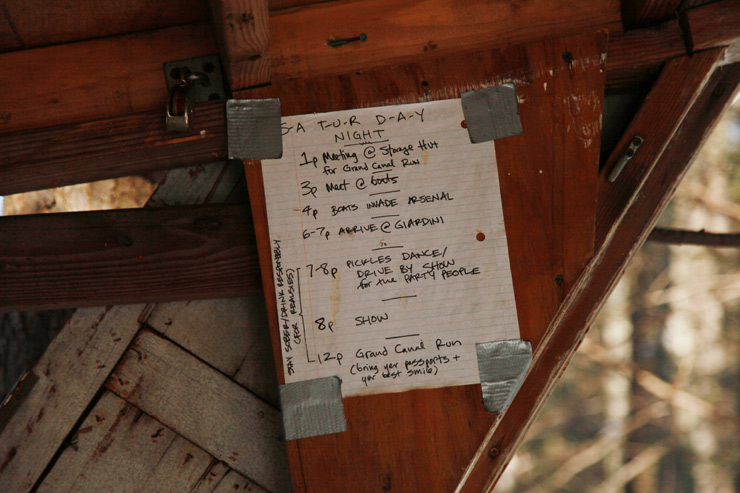 S-A T-U-R D-A-Y
NIGHT
1p Meeting @ Storage Hut
for Grand Canal Run
3p Meet @ boats
4p BOATS INVADE ARSENAL
6-7p ARRIVE @ GIARDINI
7-8p PICKLES DANCE/
DRIVE BY SHOW
for the PARTY PEOPLE
8p SHOW
12p Grand Canal Run
(bring yer passports +
yer best smile)
STAY SOBER/DRINK RESPONSIBLY
(FOR REALSIES)